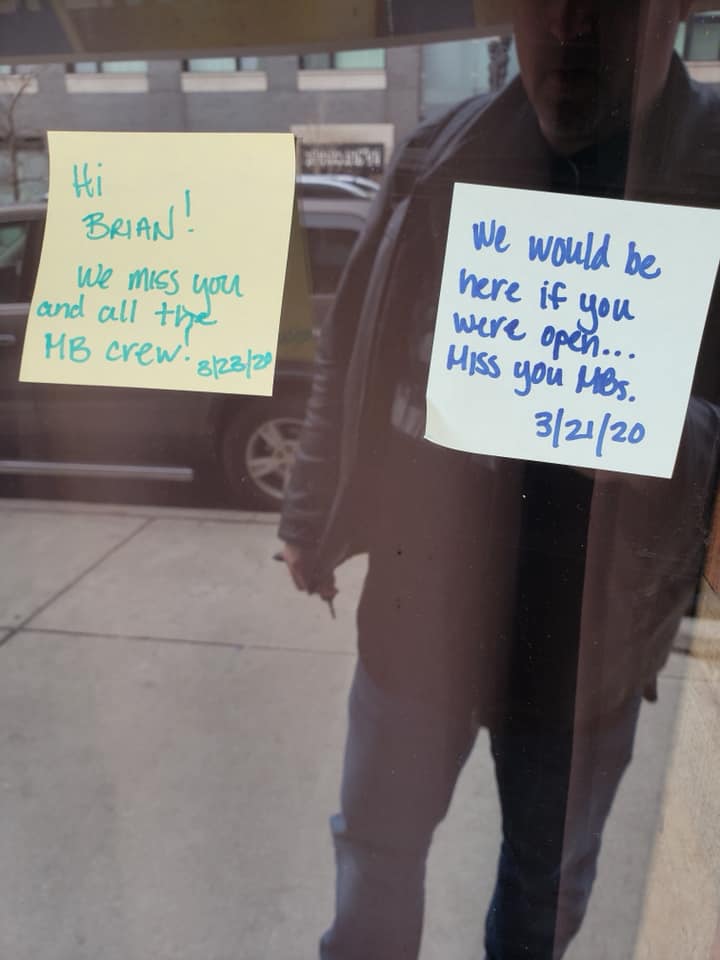 Hi
BRIAN!
We miss you
and all the
MB crew!
3/23/20
We would be
here if you
were open...
Miss you MBs.
3/21/20